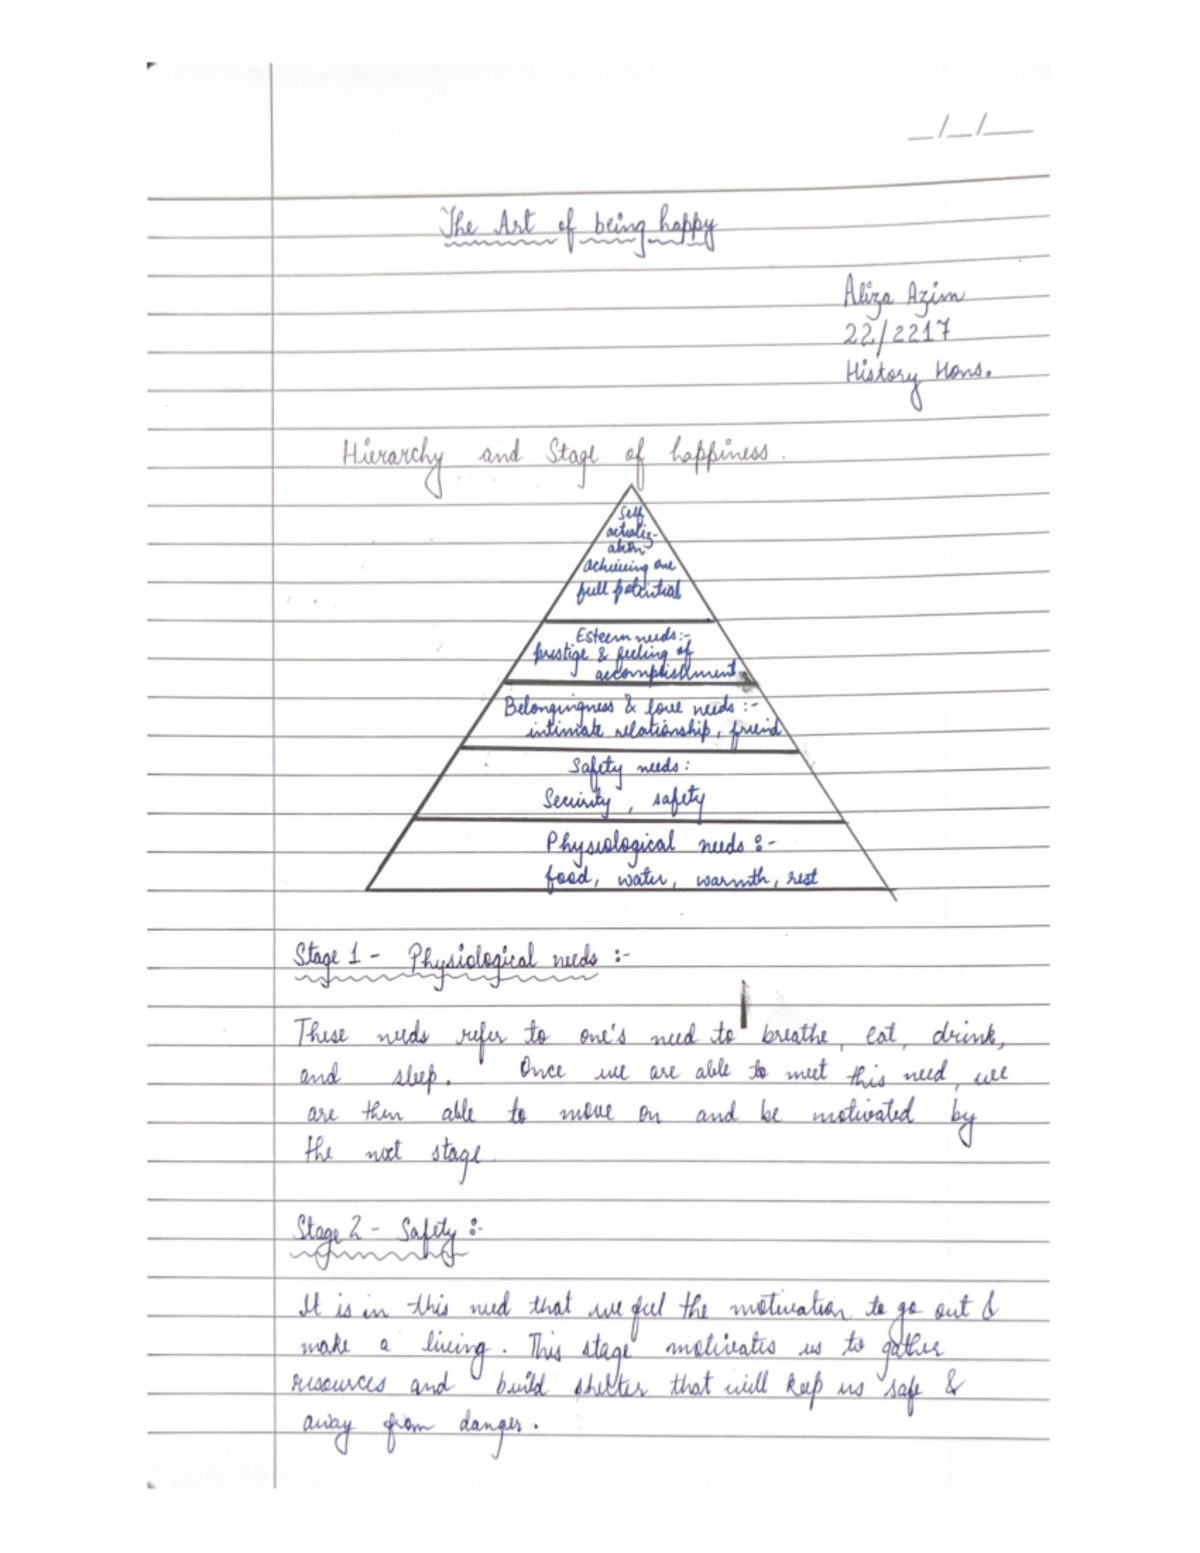 _/_/__
The Art of being happy
Aliza Azim
22/2217
History Hons.
Hierarchy and Stage of happiness.
Self
actualiz-
ation
achieving one
full potential
Esteem needs:-
prestige & feeling of
accomplishment
Belongingness & love needs :-
intimate relationship, friend
Safety needs:
Security, safety
Physiological needs :-
food, water, warmth, rest
Stage 1 - Physiological needs :-
These needs refer to one's need to breathe, eat, drink,
and sleep. Once we are able to meet this need, we
are then able to move on and be motivated by
the next stage
Stage 2 - Safety :-
It is in this need that we feel the motivation to go out &
make a living. This stage motivates us to gather
resources and build shelter that will keep us safe &
away from danger.